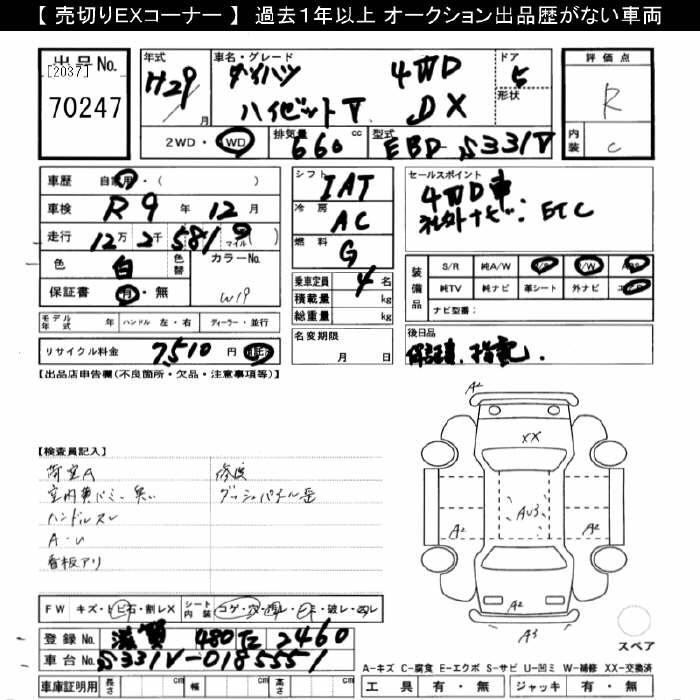 【 売切りEXコーナー 】 過去1年以上 オークション出品歴がない車両
出品No.
[2037]
70247
年式
H29
月
車名・グレード
ダイハツ 4WD
ハイゼットV DX
ドア
5
形状
評価点
R
内装
C
2WD・4WD
排気量
660 cc
型式
EBD-S331V
車歴 自家用・( )
車検 R9 年 12 月
走行 12万 2千 581 マイル( )
色 白 色替
カラーNo.
W19
保証書 有・無
シフト IAT
冷房 AC
燃料 G
乗車定員 4 名
積載量 kg
総重量 kg
名変期限
月 日
セールスポイント
4WD車
社外ナビ・ETC
装備品
S/R 純A/W P/S P/W ABS
純TV 純ナビ 革シート 外ナビ エアB
ナビ型番:
モデル年式 年 ハンドル 左・右 ディーラー・並行
リサイクル料金 7,510 円 預託済
後日品
保証書、手書記.
【出品店申告欄(不良箇所・欠品・注意事項等)】
【検査員記入】
荷室A
ハンドルスレ
A・U
看板アリ
A2
XX
AU3
A2
A2
A2
A3
スペア
FW キズ・トビ石・割レX シート内装 コゲ・穴・スレ・シミ・破レ・ヨレ
登録No. 滋賀 480 モ 2460
車台No. S331V-0185551
A-キズ C-腐食 E-エクボ S-サビ U-凹ミ W-補修 XX-交換済
車庫証明用 長さ cm 幅 cm 高さ cm
工具 有・無 ジャッキ 有・無